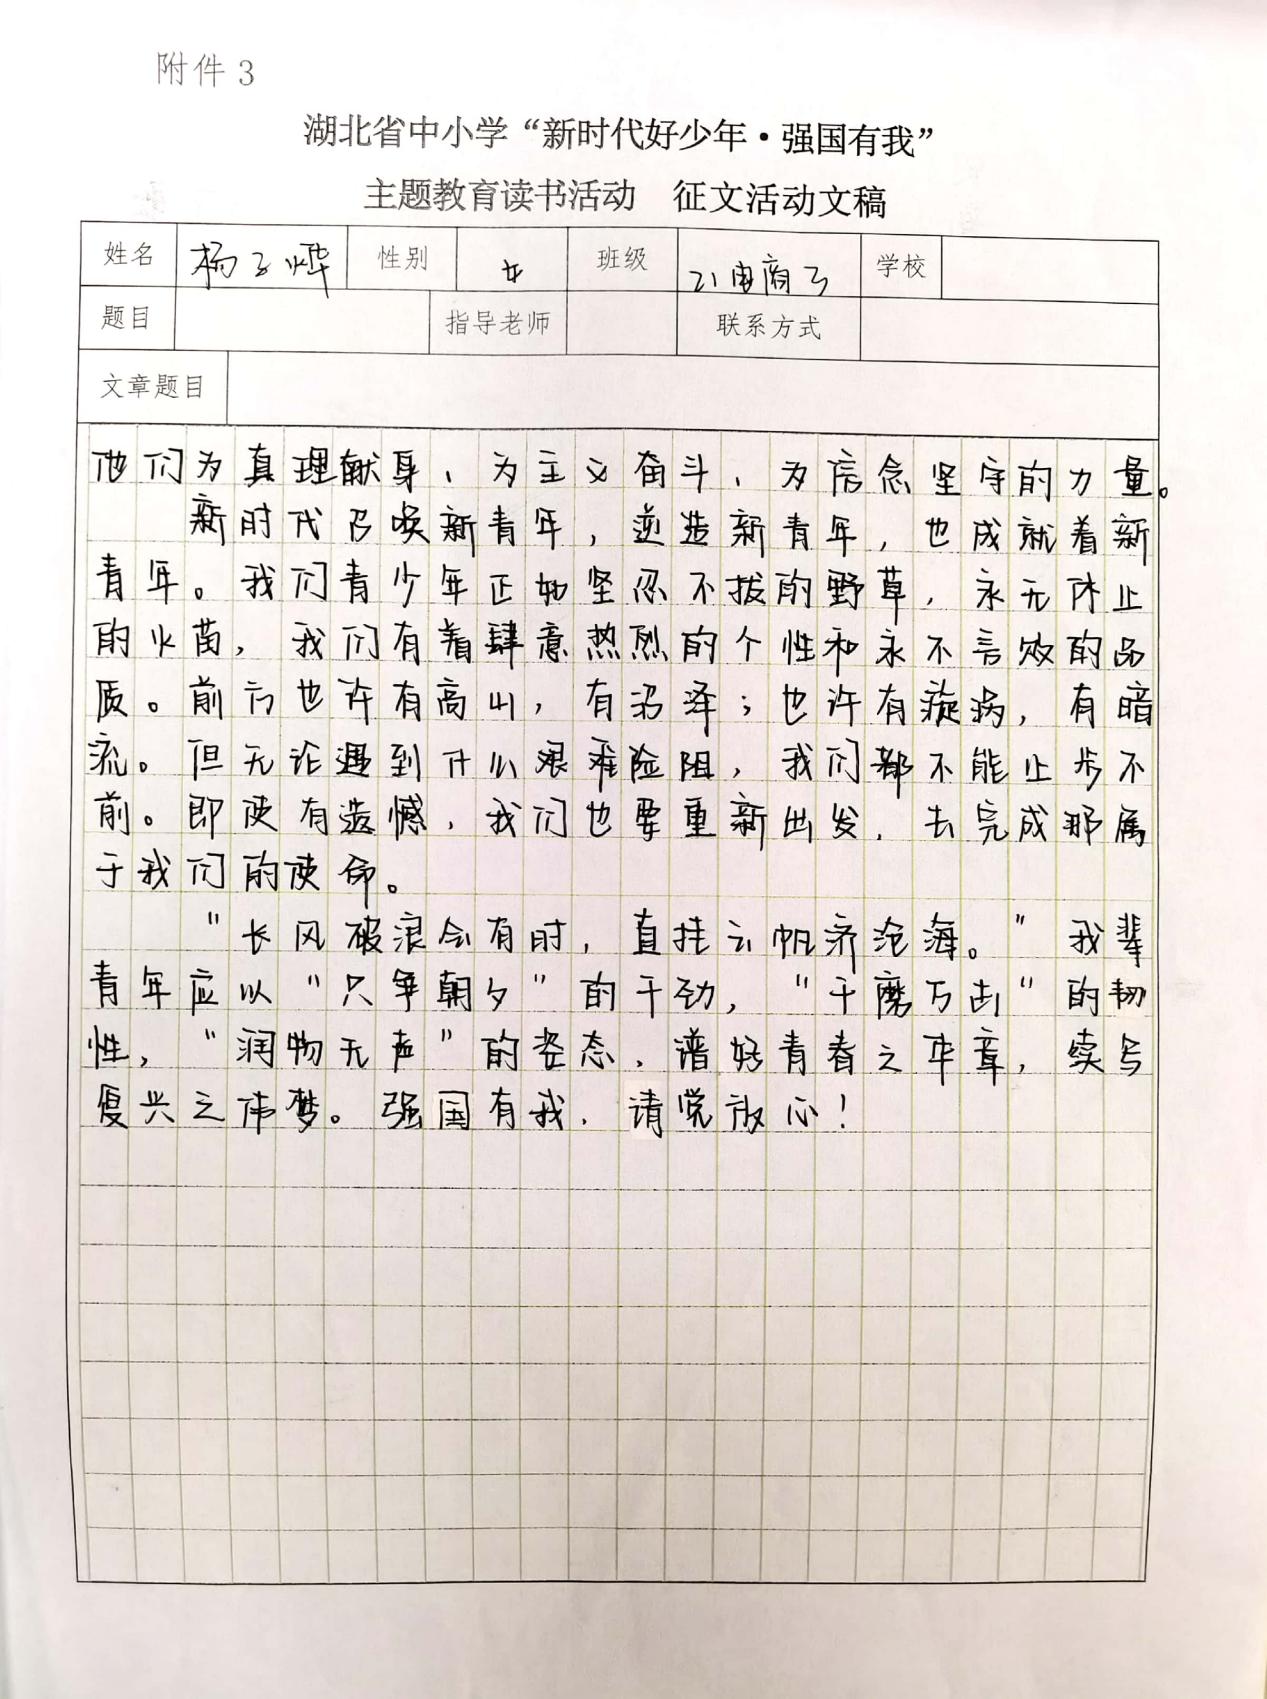 附件 3
湖北省中小学“新时代好少年·强国有我”
主题教育读书活动 征文活动文稿
姓名 杨子烨 性别 女 班级 21电商3 学校
题目 指导老师 联系方式
文章题目
他们为真理献身、为主义奋斗、为信念坚守的力量。
新时代召唤新青年，逆造新青年，也成就着新
青年。我们青少年正如坚忍不拔的野草，永无休止
的火苗，我们有着肆意热烈的个性和永不言败的品
质。前方也许有高山，有沼泽；也许有漩涡，有暗
流。但无论遇到什么艰难险阻，我们都不能止步不
前。即使有遗憾，我们也要重新出发，去完成那属
于我们的使命。
“长风破浪会有时，直挂云帆济沧海。”我辈
青年应以“只争朝夕”的干劲，“千磨万击”的韧
性，“润物无声”的姿态，谱好青春之华章，续写
复兴之伟梦。强国有我，请党放心！